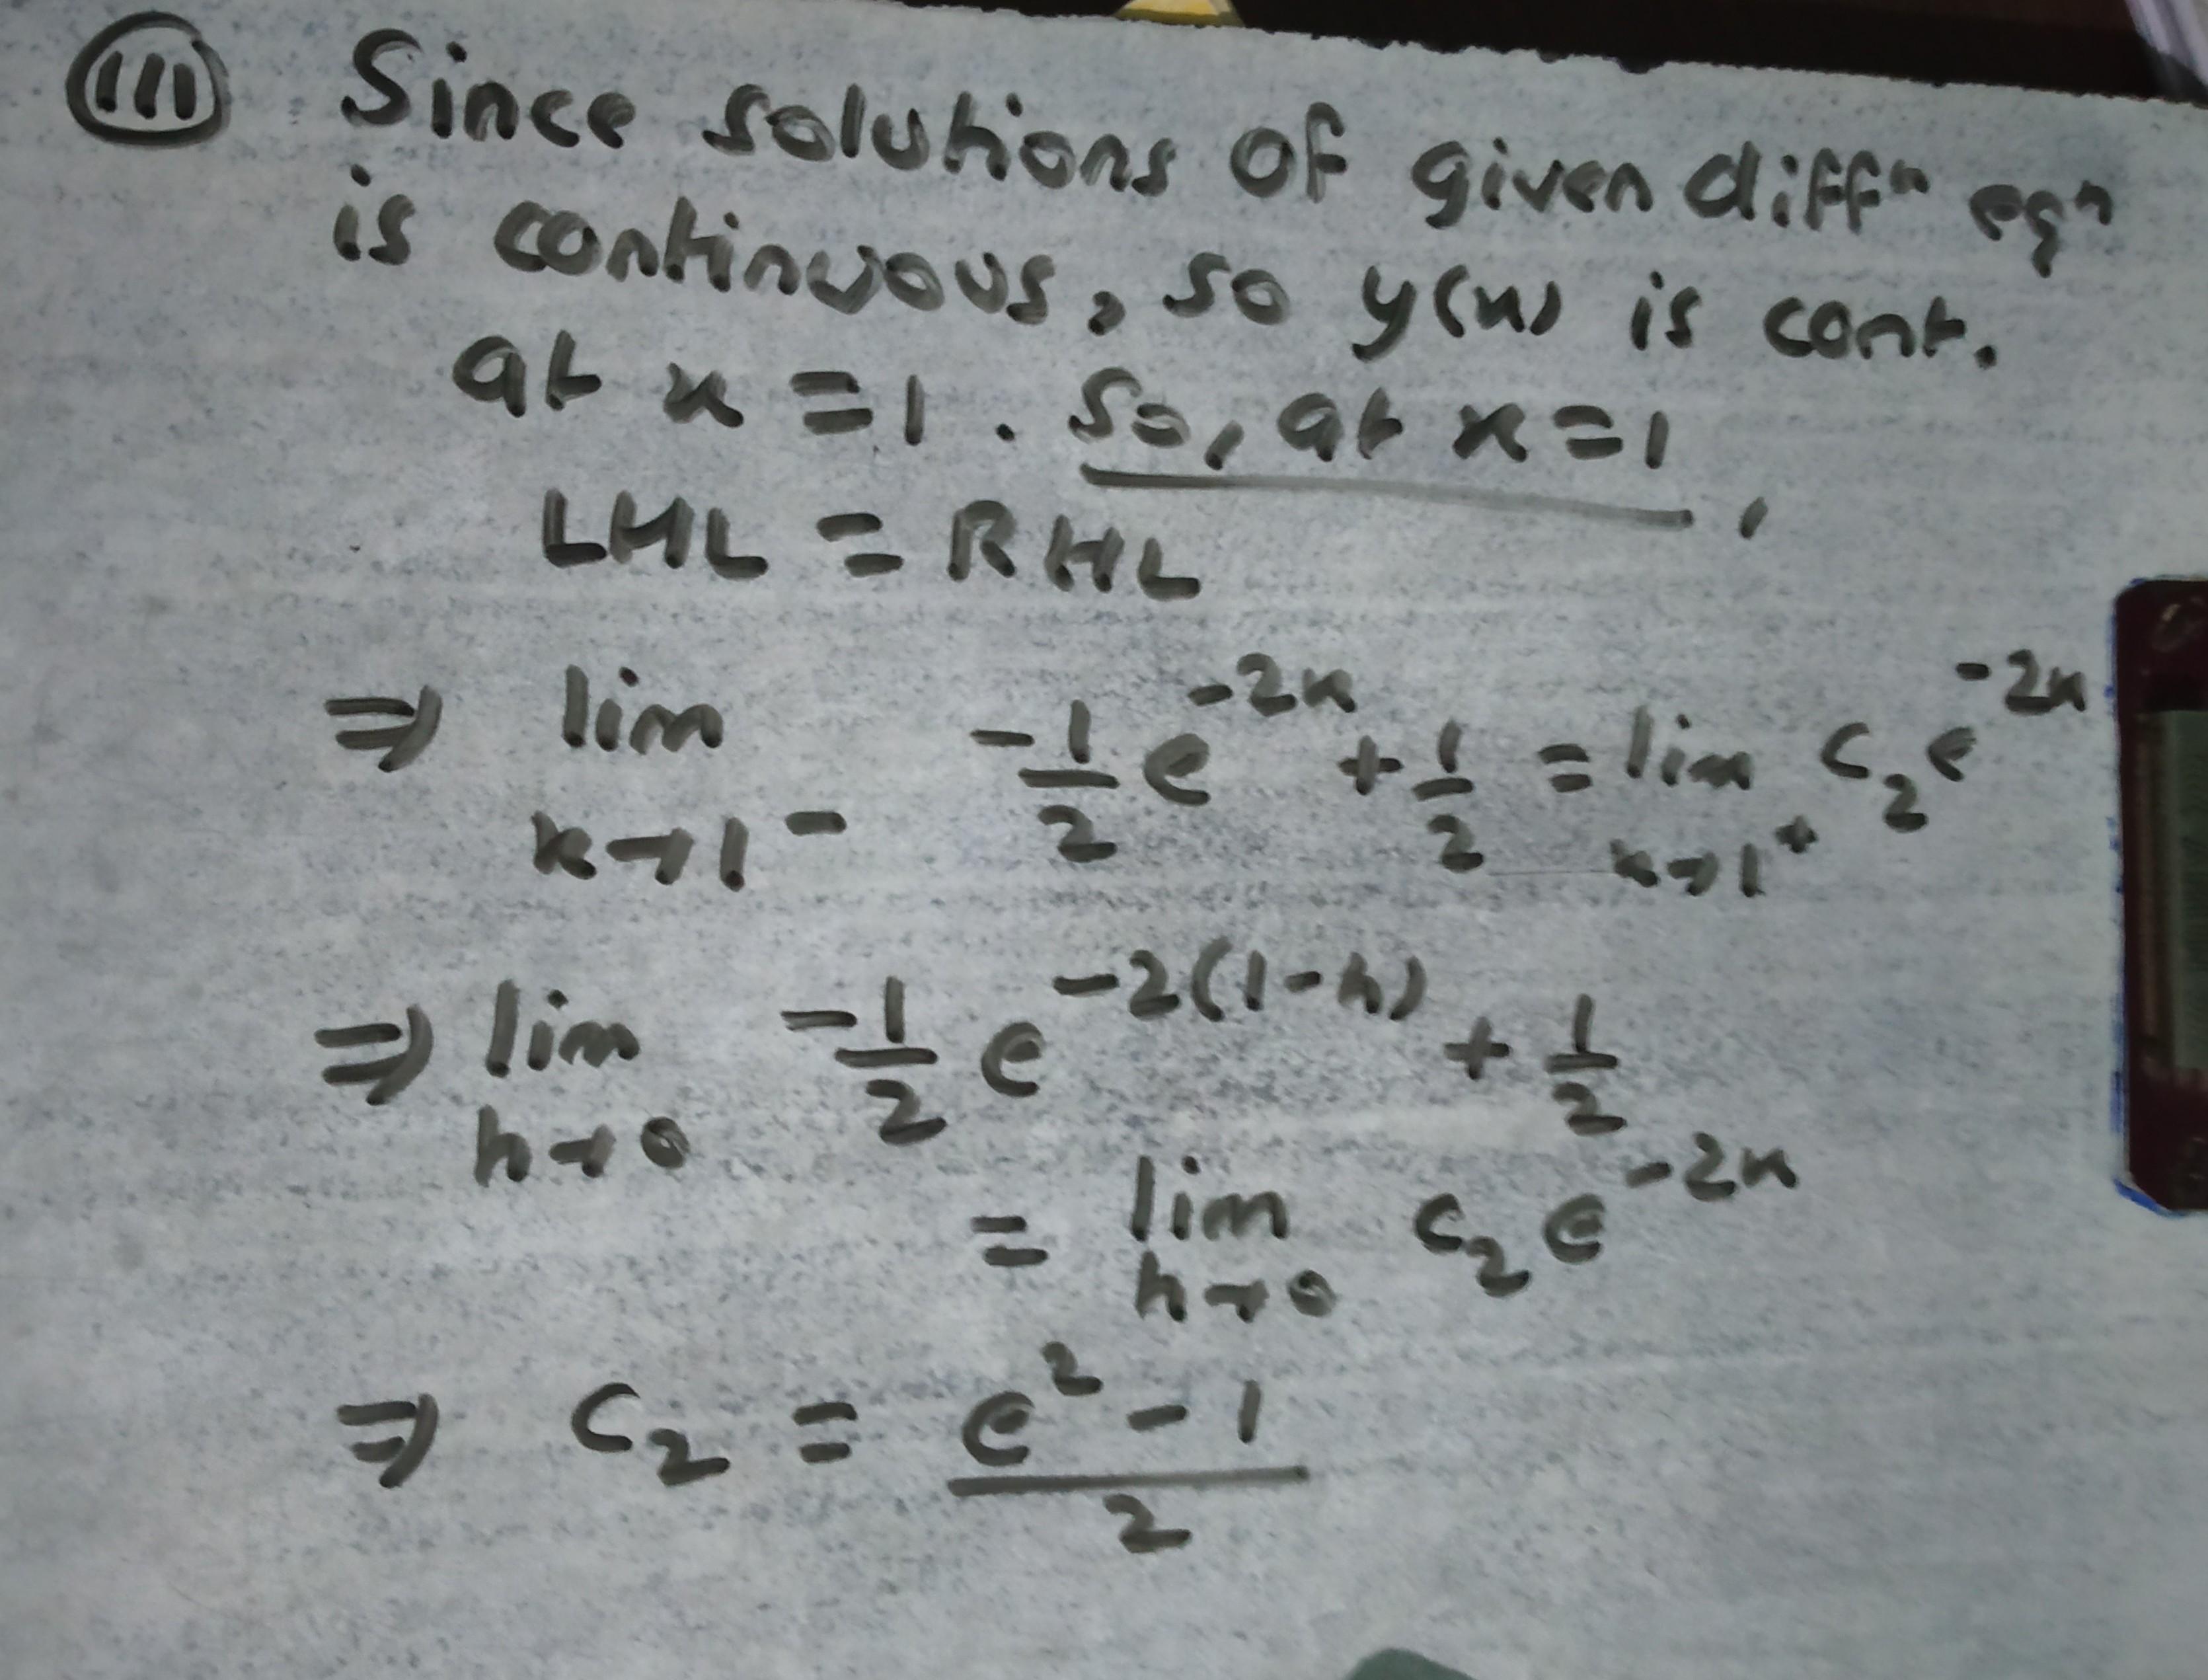 (III) Since solutions of given diffⁿ eqⁿ
is continuous, so y(x) is cont.
at x = 1 . So, at x = 1 ,
LHL = RHL
⇒ lim x→1⁻ -1/2 e^(-2x) + 1/2 = lim x→1⁺ c₂e^(-2x)
⇒ lim h→0 -1/2 e^(-2(1-h)) + 1/2
= lim h→0 c₂e^(-2x)
⇒ c₂ = (e² - 1)/2